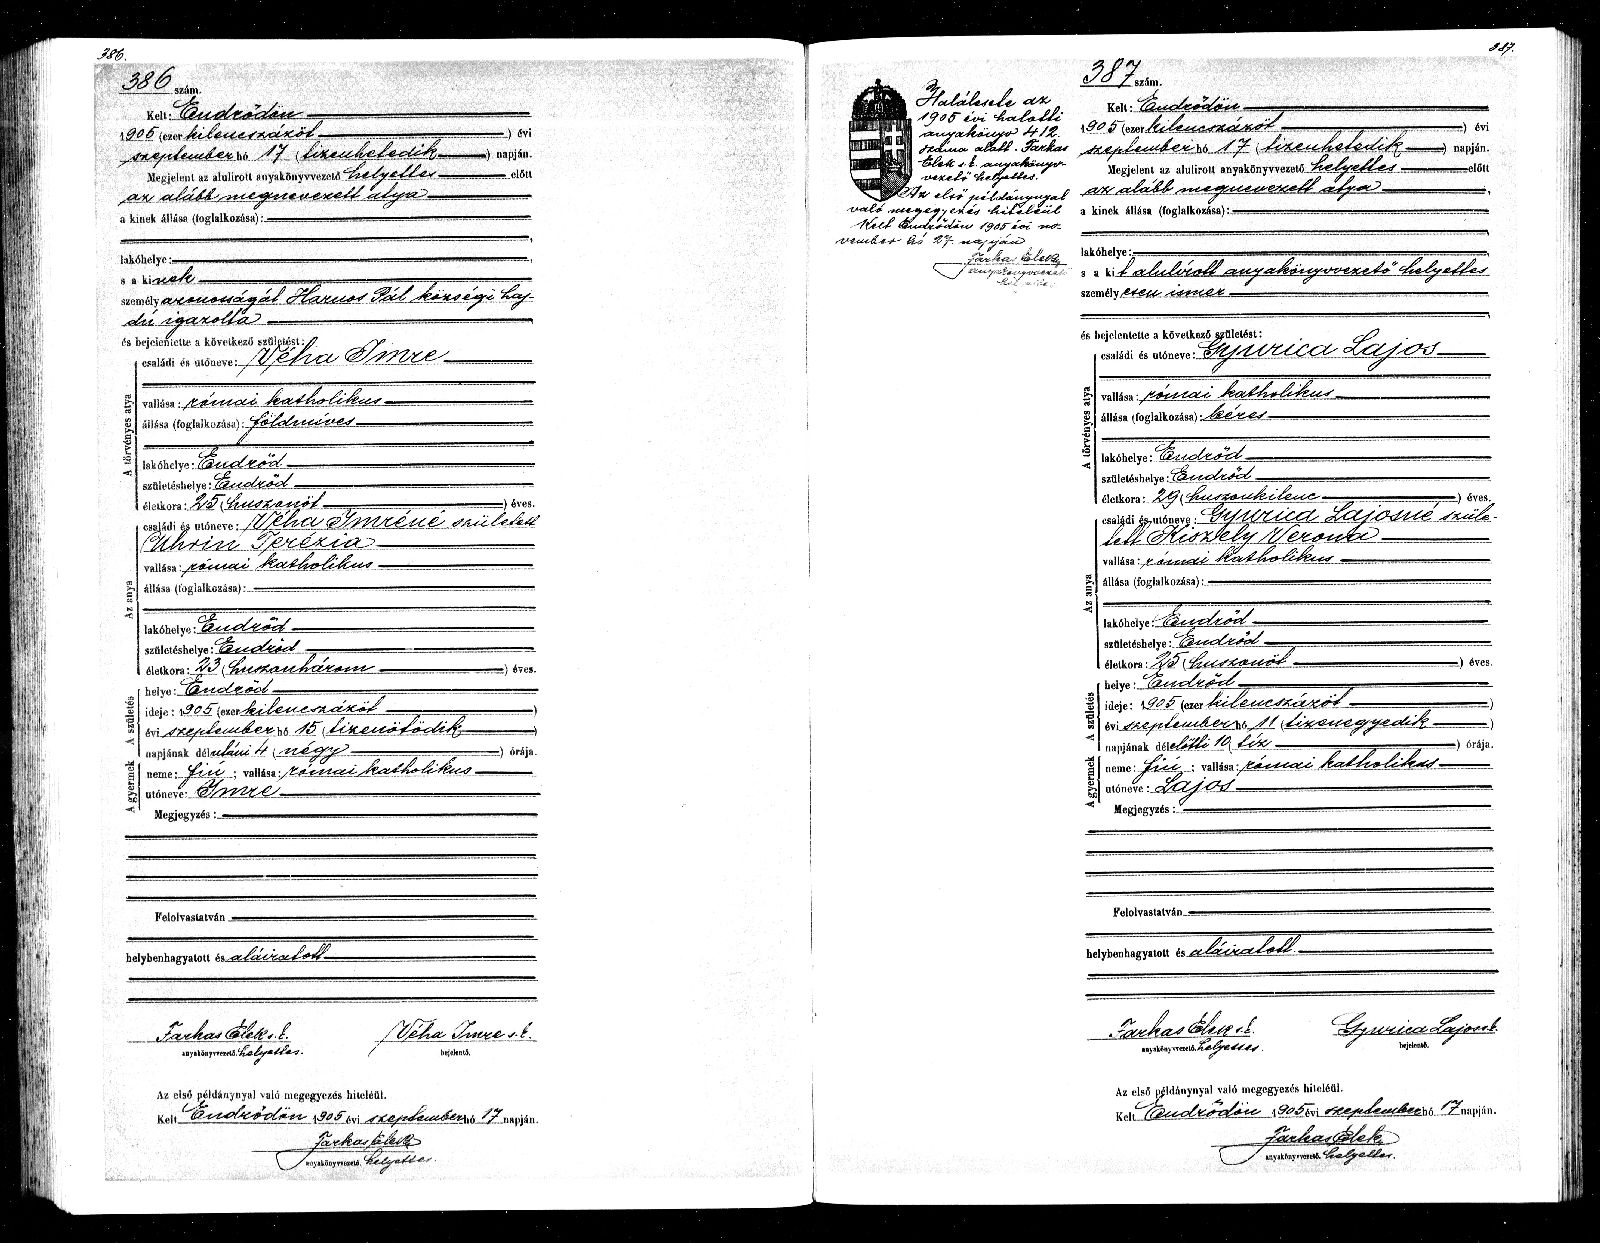 386.
386 szám.
Kelt: Endrődön
1905 (ezer kilencszázöt) évi
szeptember hó 17 (tizenhetedik) napján.
Megjelent az alulirott anyakönyvvezető helyettes előtt
az alább megnevezett atya
a kinek állása (foglalkozása):
lakóhelye:
s a kinek
személyazonosságát Harnos Pál községi haj-
dú igazolta
és bejelentette a következő születést:
A törvényes atya
családi és utóneve: Véha Imre
vallása: római katholikus
állása (foglalkozása): földmíves
lakóhelye: Endrőd
születéshelye: Endrőd
életkora: 25 (huszonöt) éves.
Az anya
családi és utóneve: Véha Imréné született
Uhrin Terézia
vallása: római katholikus
állása (foglalkozása):
lakóhelye: Endrőd
születéshelye: Endrőd
életkora: 23 (huszonhárom) éves.
A születés
helye: Endrőd
ideje: 1905 (ezer kilencszázöt)
évi szeptember hó 15 (tizenötödik)
napjának délutáni 4 (négy) órája.
A gyermek
neme: fiú; vallása: római katholikus
utóneve: Imre
Megjegyzés:
Felolvastatván
helybenhagyatott és aláiratott
Farkas Elek s. k. Véha Imre s. k.
anyakönyvvezető helyettes. bejelentő.
Az első példánynyal való megegyezés hiteléül.
Kelt Endrődön 1905 évi szeptember hó 17 napján.
Farkas Elek
anyakönyvvezető helyettes.
387.
Halálesete az
1905 évi halotti
anyakönyv 412
száma alatt. Farkas
Elek s. k. anyakönyv-
vezető helyettes.
Az első példánynyal
való megegyezés hiteléül
Kelt Endrődön 1905 évi no-
vember hó 27. napján
Farkas Elek
anyakönyvvezető
helyettes
387 szám.
Kelt: Endrődön
1905 (ezer kilencszázöt) évi
szeptember hó 17 (tizenhetedik) napján.
Megjelent az alulirott anyakönyvvezető helyettes előtt
az alább megnevezett atya,
a kinek állása (foglalkozása):
lakóhelye:
s a kit alulírott anyakönyvvezető helyettes
személyesen ismer
és bejelentette a következő születést:
A törvényes atya
családi és utóneve: Gyurica Lajos
vallása: római katholikus
állása (foglalkozása): béres
lakóhelye: Endrőd
születéshelye: Endrőd
életkora: 29 (huszonkilenc) éves.
Az anya
családi és utóneve: Gyurica Lajosné szüle-
tett Kiszely Verona
vallása: római katholikus
állása (foglalkozása):
lakóhelye: Endrőd
születéshelye: Endrőd
életkora: 25 (huszonöt) éves.
A születés
helye: Endrőd
ideje: 1905 (ezer kilencszázöt)
évi szeptember hó 11 (tizenegyedik)
napjának délelőtti 10 (tíz) órája.
A gyermek
neme: fiú; vallása: római katholikus
utóneve: Lajos
Megjegyzés:
Felolvastatván
helybenhagyatott és aláiratott
Farkas Elek s. k. Gyurica Lajos s. k.
anyakönyvvezető helyettes. bejelentő.
Az első példánynyal való megegyezés hiteléül.
Kelt Endrődön 1905 évi szeptember hó 17 napján.
Farkas Elek
anyakönyvvezető helyettes.